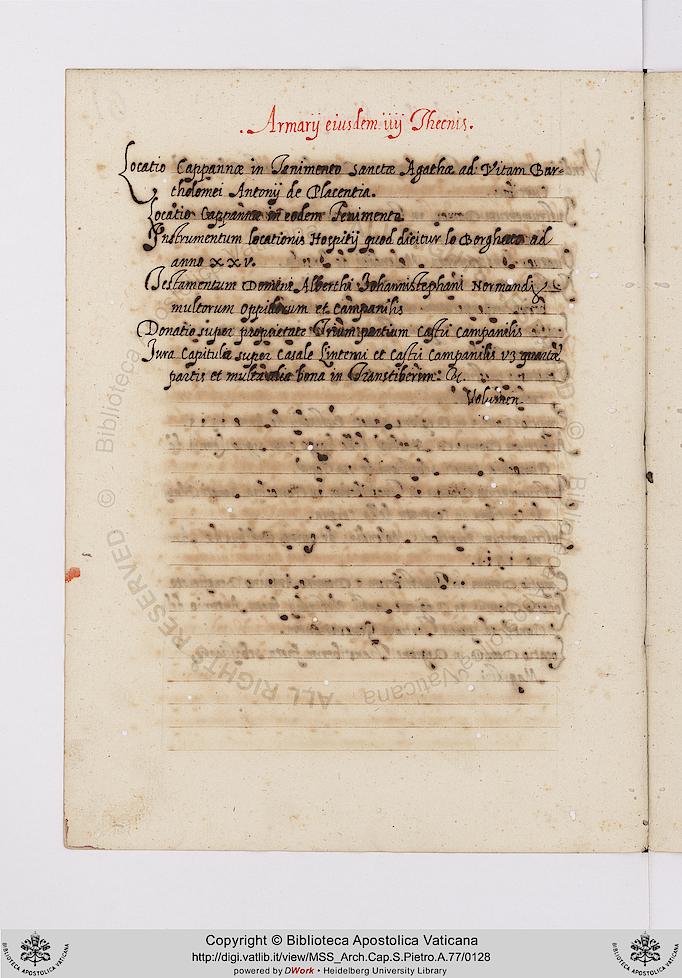 . Armarij eiusdem iiij Thecnis .
Locatio Cappannæ in Tenimento Sanctæ Agathæ ad Vitam Bar=
tholomei Antonij de Placentia.
Locatio Cappannæ in eodem Tenimento
Instrumentum locationis Hospitij quod dicitur lo Borghetto ad
anno xxv.
Testamentum Domini Alberthi Johannistephani Normandi
multorum oppidorum et Campanilis
Donatio super proprietate Trium partium Castri Campanilis
Jura Capituli super Casale Linterni et Castri Campanilis v3 quartæ
partis et multa alia bona in Transtiberim.
Volumen
© Biblioteca Apostolica Vaticana
ALL RIGHTS RESERVED
Copyright © Biblioteca Apostolica Vaticana
http://digi.vatlib.it/view/MSS_Arch.Cap.S.Pietro.A.77/0128
powered by DWork • Heidelberg University Library